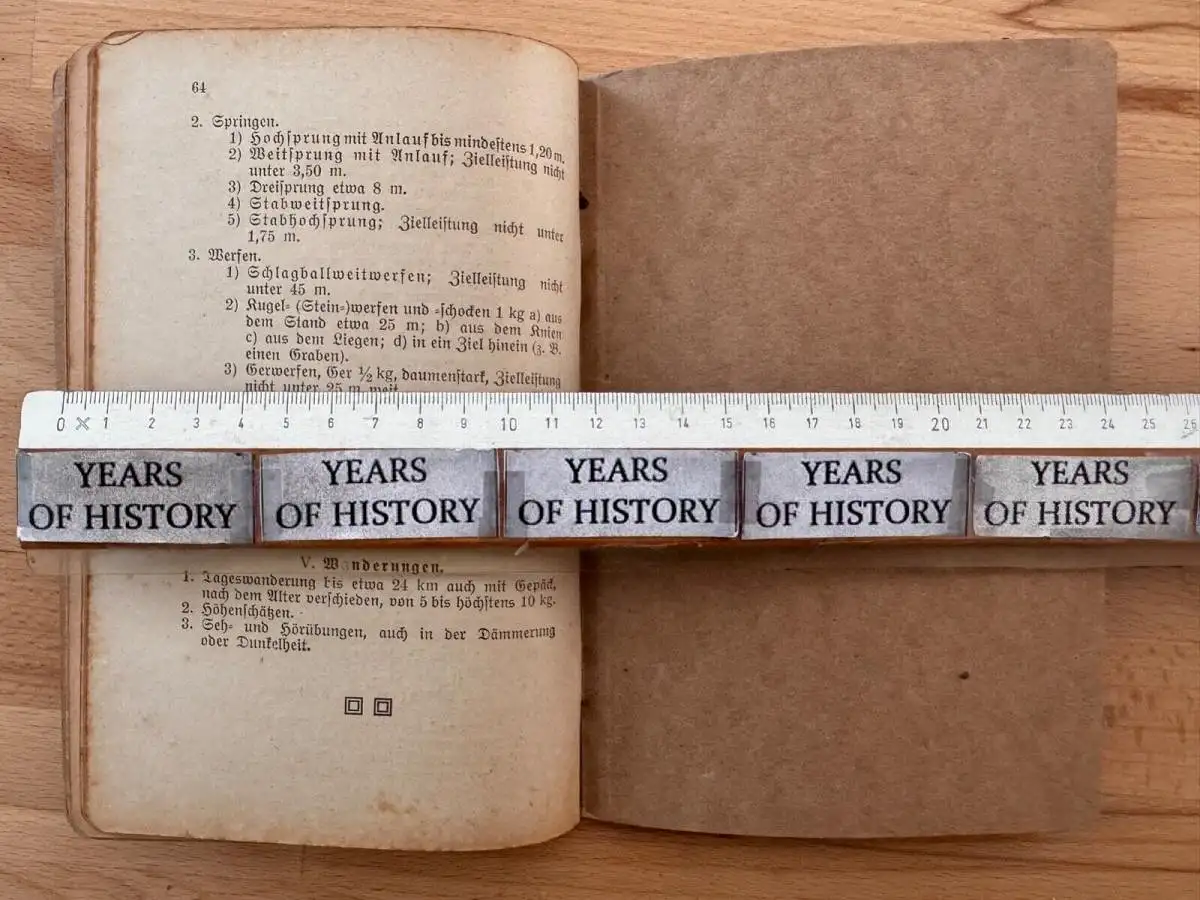 64
2. Springen.
1) Hochsprung mit Anlauf bis mindestens 1,20 m.
2) Weitsprung mit Anlauf; Zielleistung nicht
unter 3,50 m.
3) Dreisprung etwa 8 m.
4) Stabweitsprung.
5) Stabhochsprung; Zielleistung nicht unter
1,75 m.
3. Werfen.
1) Schlagballweitwerfen; Zielleistung nicht
unter 45 m.
2) Kugel- (Stein-)werfen und -schocken 1 kg a) aus
dem Stand etwa 25 m; b) aus dem Knien
c) aus dem Liegen; d) in ein Ziel hinein (z. B.
einen Graben).
3) Gerwerfen, Ger ½ kg, daumenstark, Zielleistung
nicht unter 25 m weit
0 1 2 3 4 5 6 7 8 9 10 11 12 13 14 15 16 17 18 19 20 21 22 23 24 25 26
YEARS OF HISTORY
YEARS OF HISTORY
YEARS OF HISTORY
YEARS OF HISTORY
YEARS OF HISTORY
V. Wanderungen.
1. Tageswanderung bis etwa 24 km auch mit Gepäck,
nach dem Alter verschieden, von 5 bis höchstens 10 kg.
2. Höhenschätzen.
3. Seh- und Hörübungen, auch in der Dämmerung
oder Dunkelheit.